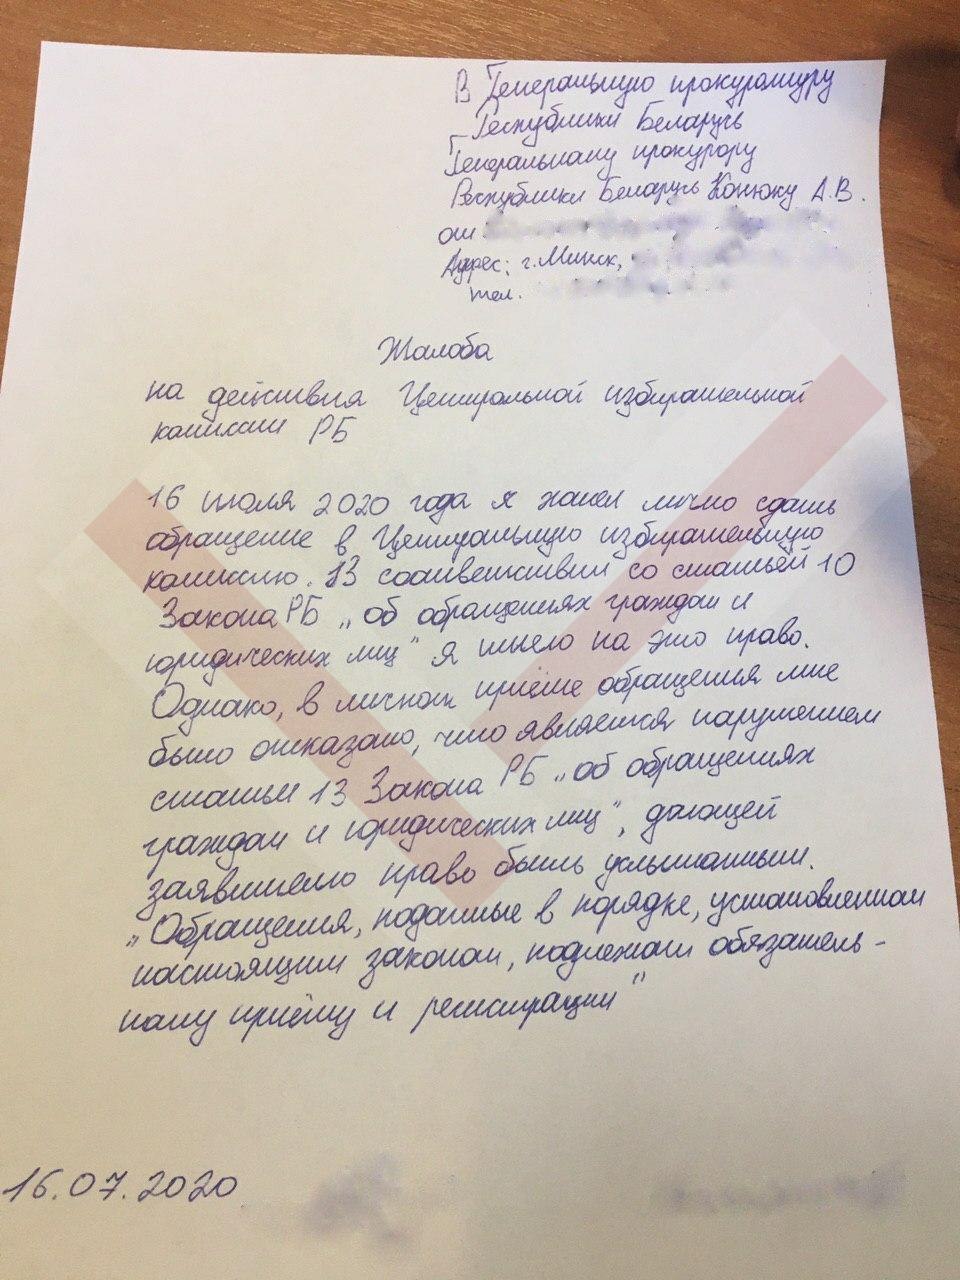 В Генеральную прокуратуру
Республики Беларусь
Генеральному прокурору
Республики Беларусь Конюку А.В.
от
Адрес: г. Минск,
тел.
Жалоба
на действия Центральной избирательной
комиссии РБ
16 июля 2020 года я хотел лично сдать
обращение в Центральную избирательную
комиссию. В соответствии со статьёй 10
Закона РБ „об обращениях граждан и
юридических лиц" я имею на это право.
Однако, в личном приёме обращения мне
было отказано, что является нарушением
статьи 13 Закона РБ „об обращениях
граждан и юридических лиц", дающей
заявителю право быть услышанным.
„Обращения, поданные в порядке, установленном
настоящим законом, подлежат обязатель-
ному приёму и регистрации"
16.07.2020